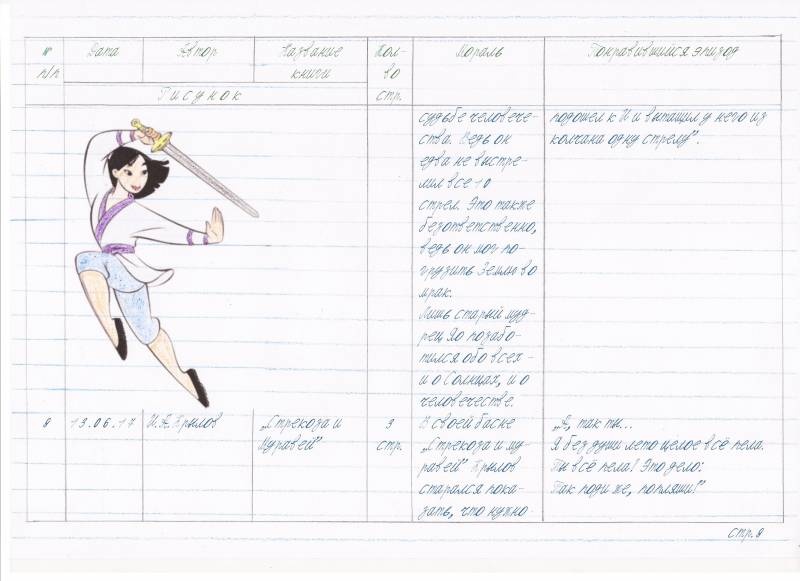 № п/п
Дата
Автор
Название книги
Кол-во стр.
Мораль
Понравившийся эпизод
Рисунок
судьбе человече-
ства. Ведь он
едва не выстре-
лил все 10
стрел. Это также
безответственно,
ведь он мог по-
грузить Землю во
мрак.
Лишь старый муд-
рец Яо позабо-
тился обо всех –
и о Солнцах, и о
человечестве.
подошел к И и вытащил у него из
колчана одну стрелу".
9
13.06.17
И.А.Крылов
„Стрекоза и
Муравей"
3
стр.
В своей басне
„Стрекоза и му-
равей" Крылов
старался пока-
зать, что нужно
„А, так ты...
Я без души лето целое всё пела.
Ты всё пела? Это дело:
Так поди же, попляши!"
стр.9